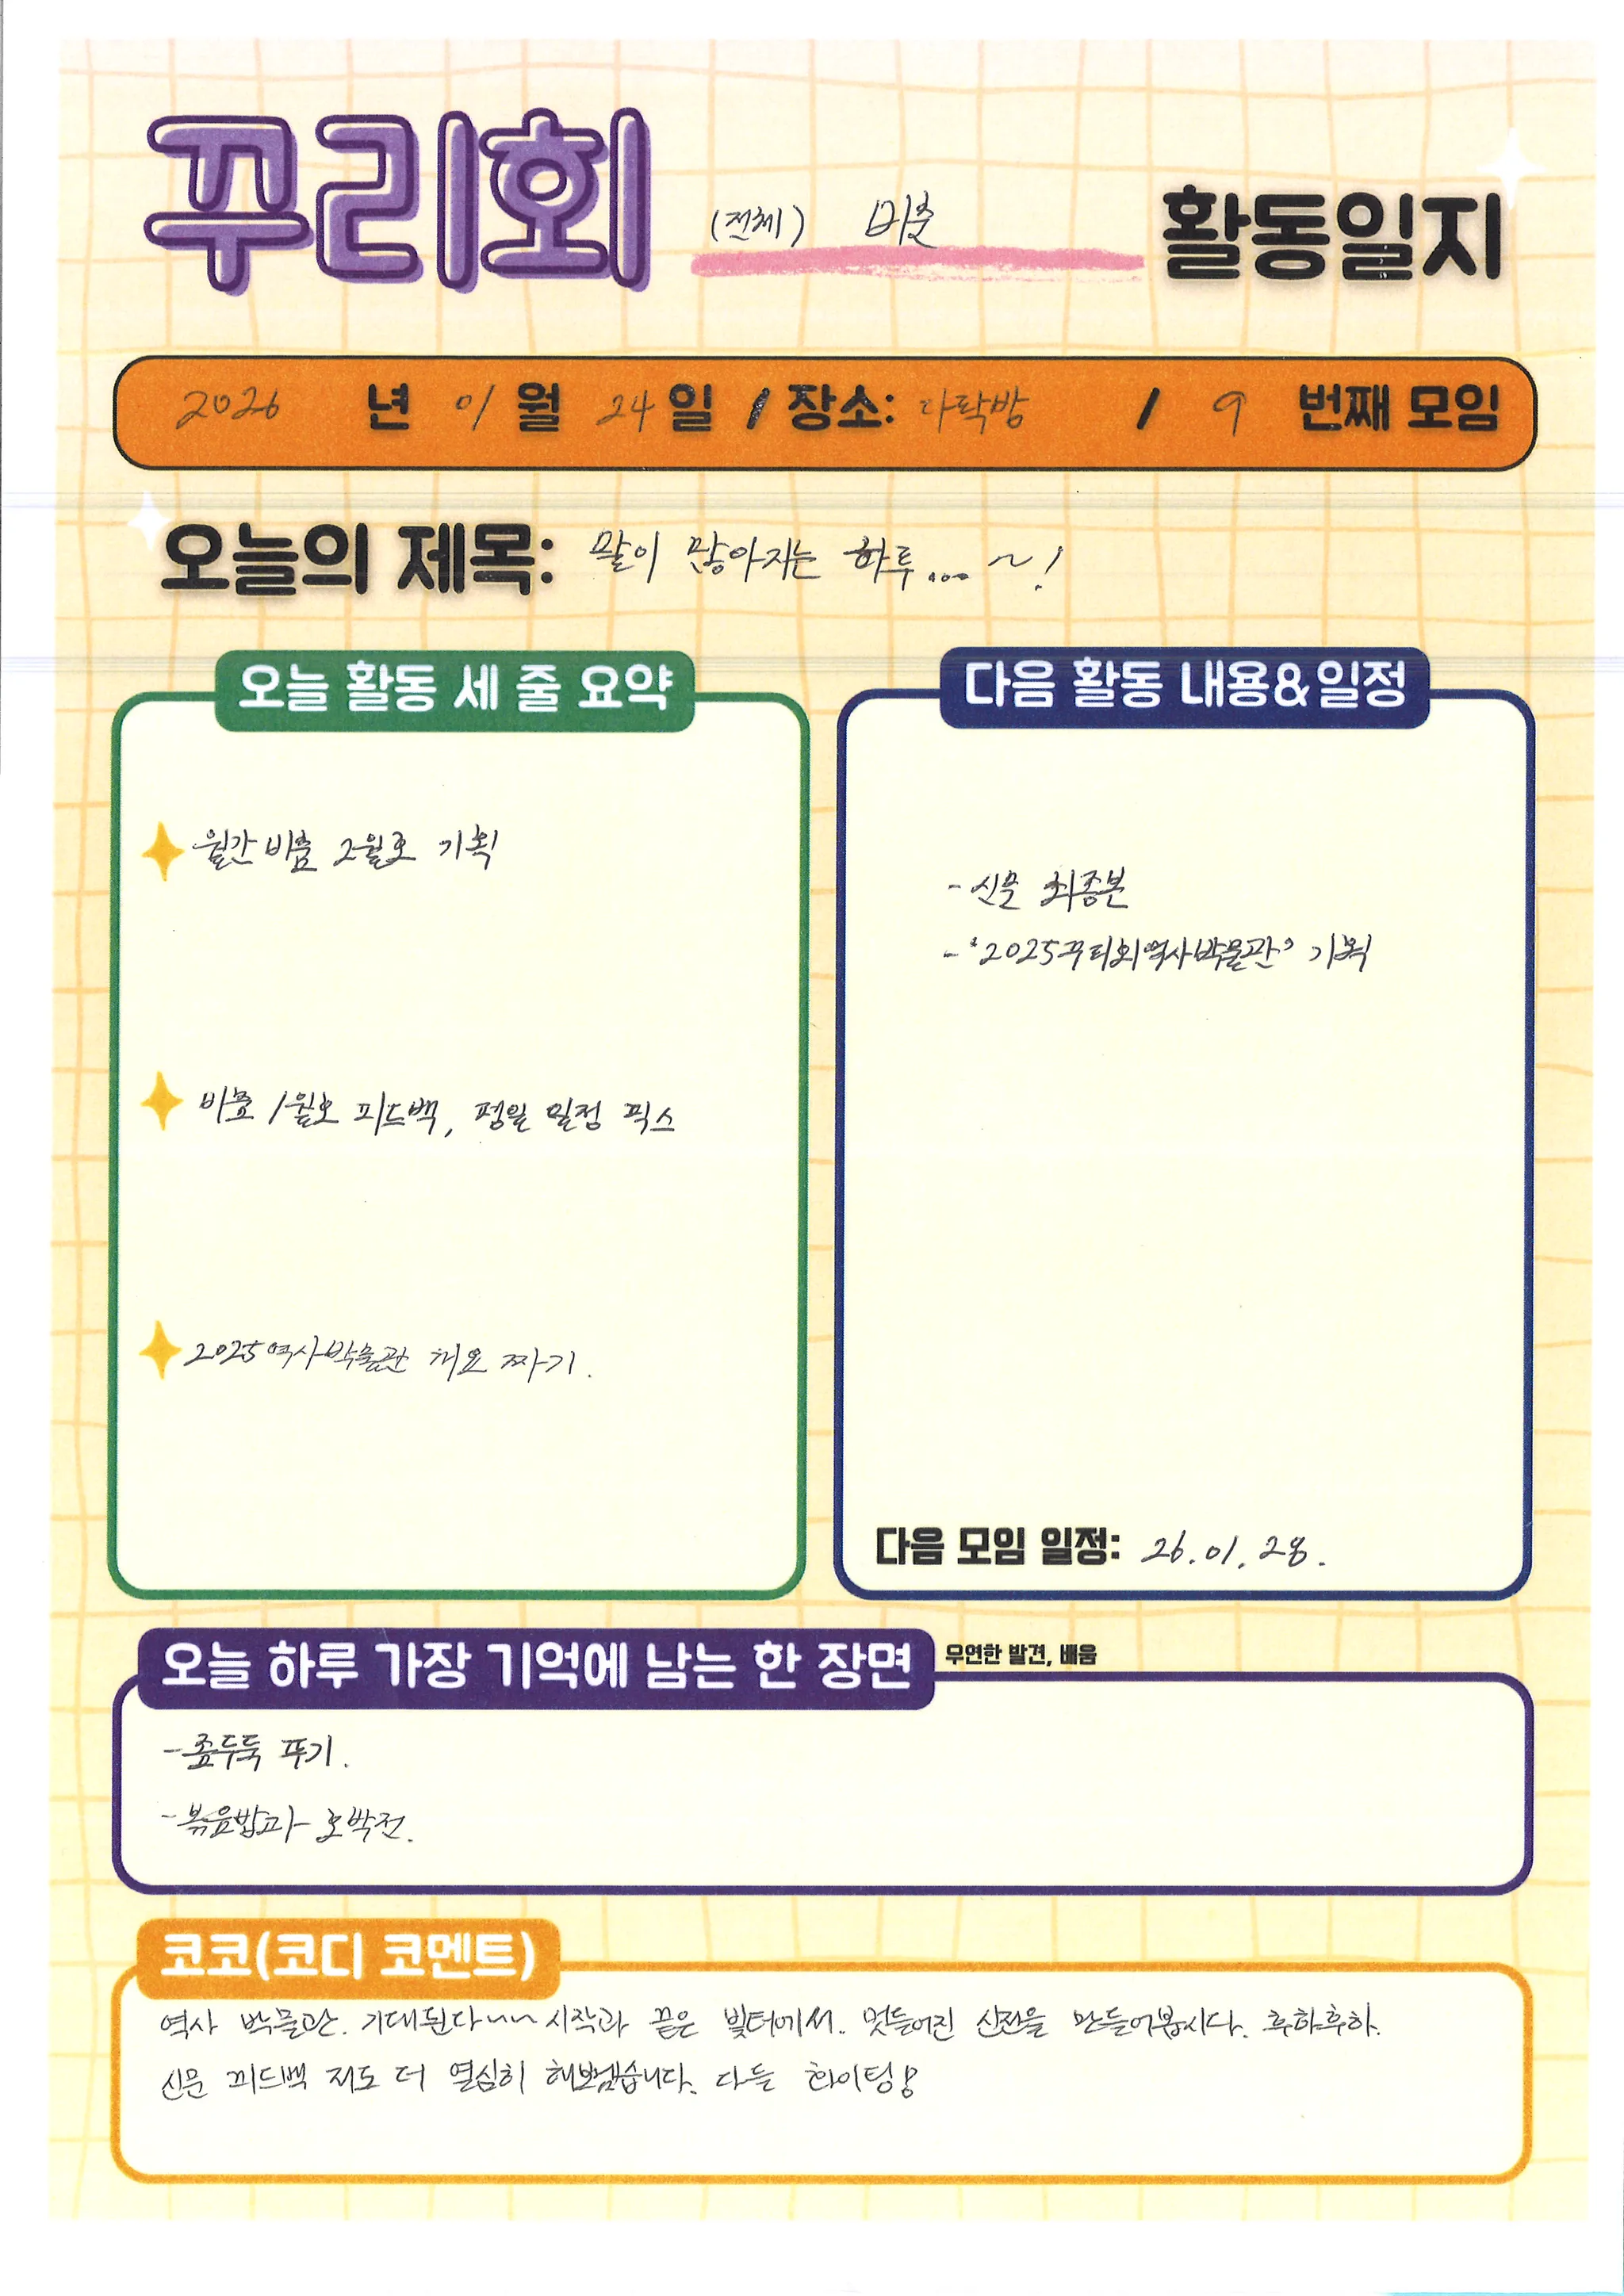 꾸리회 (전체) 비춤 활동일지
2026 년 01 월 24 일 / 장소: 다락방 / 9 번째 모임
오늘의 제목: 말이 많아지는 하루... ~!
오늘 활동 세 줄 요약
월간비춤 2월호 기획
비춤 1월호 피드백, 평일 일정 픽스
2025역사박물관 개요 짜기.
다음 활동 내용&일정
- 신문 최종본
- '2025꾸리회역사박물관' 기획
다음 모임 일정: 26.01.28.
오늘 하루 가장 기억에 남는 한 장면 우연한 발견, 배움
- 뚜기.
- 볶음밥과 호박전.
코코(코디 코멘트)
역사 박물관. 기대된다~~ 시작과 끝은 빛터에서. 멋들어진 산전을 만들어봅시다. 후하후하.
신문 피드백 저도 더 열심히 해보겠습니다. 다들 화이팅!